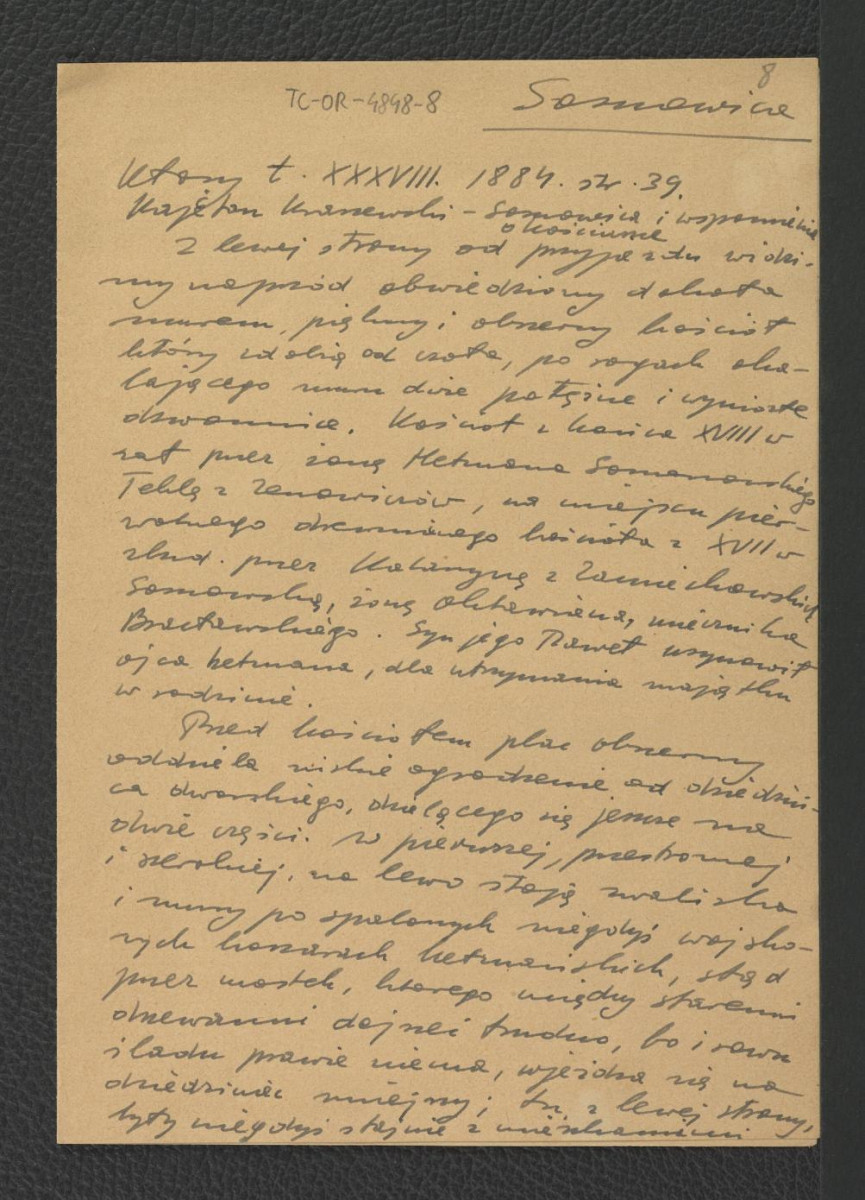 8
TC-OR-4848-8
Sosnowica
Kłosy t. XXXVIII. 1884. str. 39.
Kajetan Kraszewski – Sosnowica i wspomnienie
o Kościuszce
Z lewej strony od przyjazdu widzi-
my naprzód obwiedziony dokoła
murem, piękny i obszerny kościół
który zdobią od czoła, po rogach oka-
lającego muru dwie potężne i wyniosłe
dzwonnice. Kościół z końca XVIII w
zał przez żonę Hetmana Sosnowskiego
Teklę z Zenowiczów, na miejscu pier-
wotnego drewnianego kościoła z XVII w
zbud. przez Katarzynę z
Sosnowską, żonę Oktawiana, miecznika
Bracławskiego. Syn jego Paweł usynowił
ojca hetmana, dla utrzymania majątku
w rodzinie.
Przed kościołem plac obszerny
oddziela niskie ogrodzenie od dziedziń-
ca dworskiego, dzielącego się jeszcze na
dwie części. W pierwszej, przestronnej
i szerokiej, na lewo stoją zwaliska
i mury po spalonych niegdyś wojsko-
wych koszarach hetmańskich, stąd
przez mostek, którego między staremi
drzewami dojrzeć trudno, bo i rowu
śladu prawie niema, wjeżdża się na
dziedziniec mniejszy; tu, z lewej strony,
były niegdyś stajnie z mieszkaniami